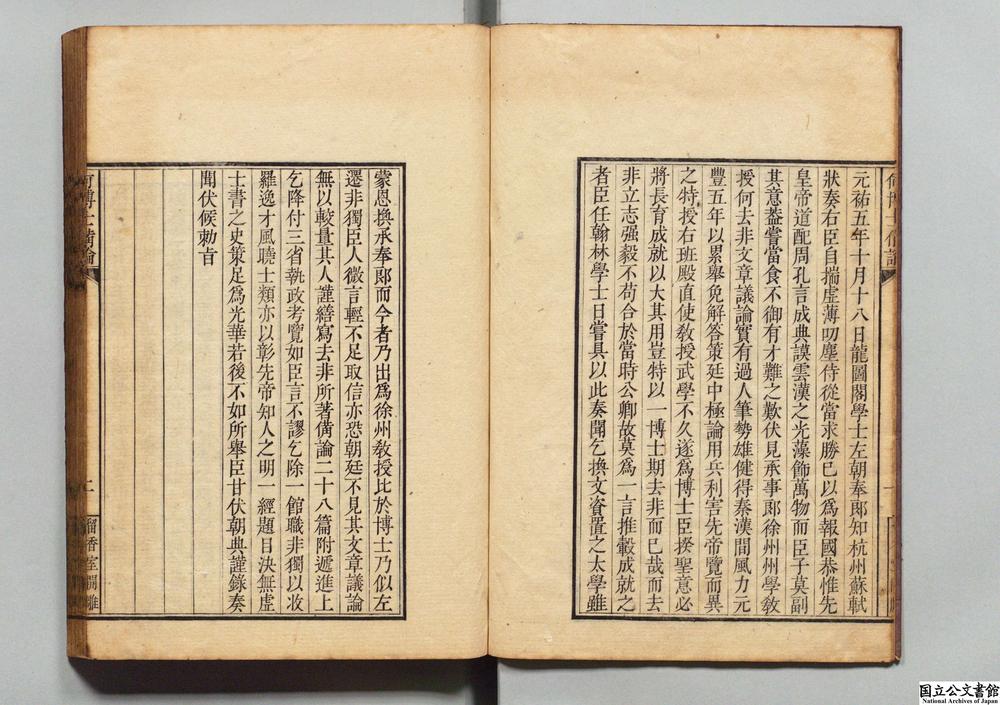 元祐五年十月十八日龍圖閣學士左朝奉郎知杭州蘇軾
狀奏右臣自揣虛薄叨塵侍從當求勝已以爲報國恭惟先
皇帝道配周孔言成典謨雲漢之光藻飾萬物而臣子莫副
其意葢嘗當食不御有才難之歎伏見承事郎徐州州學敎
授何去非文章議論實有過人筆勢雄健得秦漢間風力元
豐五年以累舉免解答策廷中極論用兵利害先帝覽而異
之特授右班殿直使敎授武學不久遂爲博士臣揆聖意必
將長育成就以大其用豈特以一博士期去非而已哉而去
非立志强毅不苟合於當時公卿故莫爲一言推轂成就之
者臣任翰林學士日嘗具以此奏聞乞換文資置之太學雖
蒙恩換承奉郎而今者乃出爲徐州敎授比於博士乃似左
遷非獨臣人微言輕不足取信亦恐朝廷不見其文章議論
無以較量其人謹繕寫去非所著備論二十八篇附遞進上
乞降付三省執政考覽如臣言不謬乞除一館職非獨以收
羅逸才風曉士類亦以彰先帝知人之明一經題目決無虛
士書之史策足爲光華若後不如所舉臣甘伏朝典謹錄奏
聞伏候勅旨
何博士備論
二
畱香室開雕
何博士備論
一
国立公文書館
National Archives of Japan